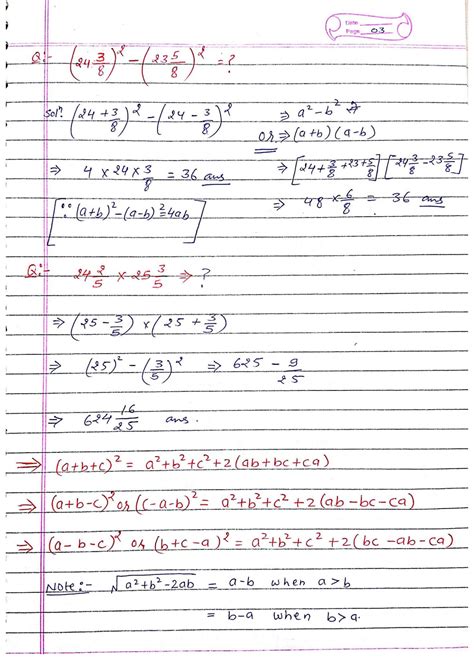 Date
Page 03
Q:- (24 3/8)² - (23 5/8)² = ?
Solⁿ: (24 + 3/8)² - (24 - 3/8)² ⇒ a² - b² 
or ⇒ (a+b)(a-b)
⇒ 4 × 24 × 3/8 = 36 ans ⇒ [24 + 3/8 + 23 + 5/8] [24 3/8 - 23 5/8]
[∵ (a+b)² - (a-b)² = 4ab] ⇒ 48 × 6/8 = 36 ans
Q:- 24 2/5 × 25 3/5 ⇒ ?
⇒ (25 - 3/5) × (25 + 3/5)
⇒ (25)² - (3/5)² ⇒ 625 - 9/25
⇒ 624 16/25 ans.
⇒ (a+b+c)² = a²+b²+c²+2(ab+bc+ca)
⇒ (a+b-c)² or (c-a-b)² = a²+b²+c²+2(ab-bc-ca)
⇒ (a-b-c)² or (b+c-a)² = a²+b²+c²+2(bc-ab-ca)
Note:- √(a²+b²-2ab) = a-b when a>b
= b-a when b>a.